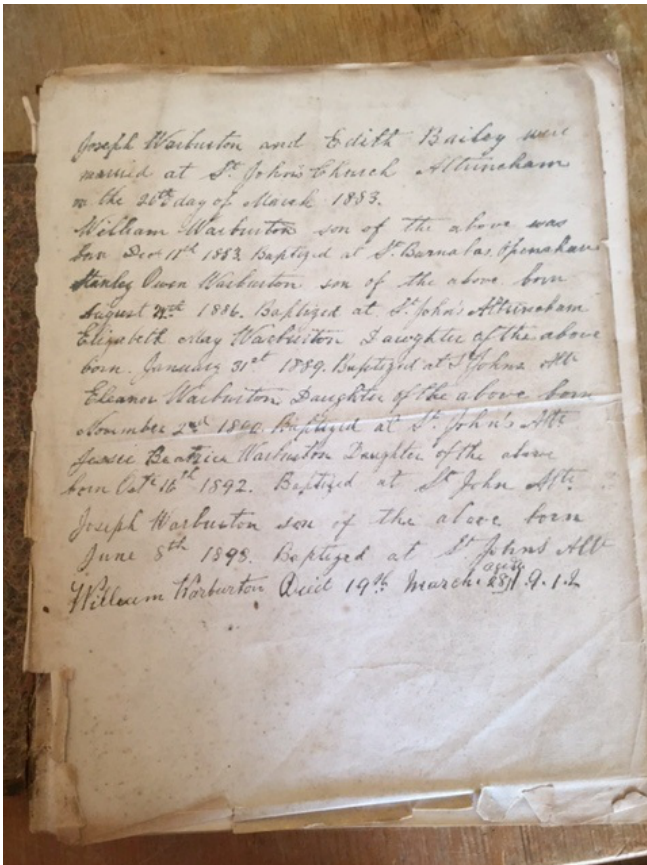 Joseph Warburton and Edith Bailey were
married at St John's Church Altrincham
on the 26th day of March 1883.
William Warburton son of the above was
born Decr 11th 1883 Baptized at St. Barnabas, Openshaw
Stanley Owen Warburton son of the above born
August 1886. Baptized at St John's Altrincham
Elizabeth May Warburton Daughter of the above
born. January 31st 1889. Baptized at St Johns Alt
Eleanor Warburton Daughter of the above born
November 2nd 1890. Baptized at St. John's Alt
Jessee Beatrice Warburton Daughter of the above
born Octr 16th 1892. Baptized at St John Alt.
Joseph Warburton son of the above born
June 8th 1898. Baptized at St Johns Alt
William Warburton Died 19th March. aged 28 1.9.1.2